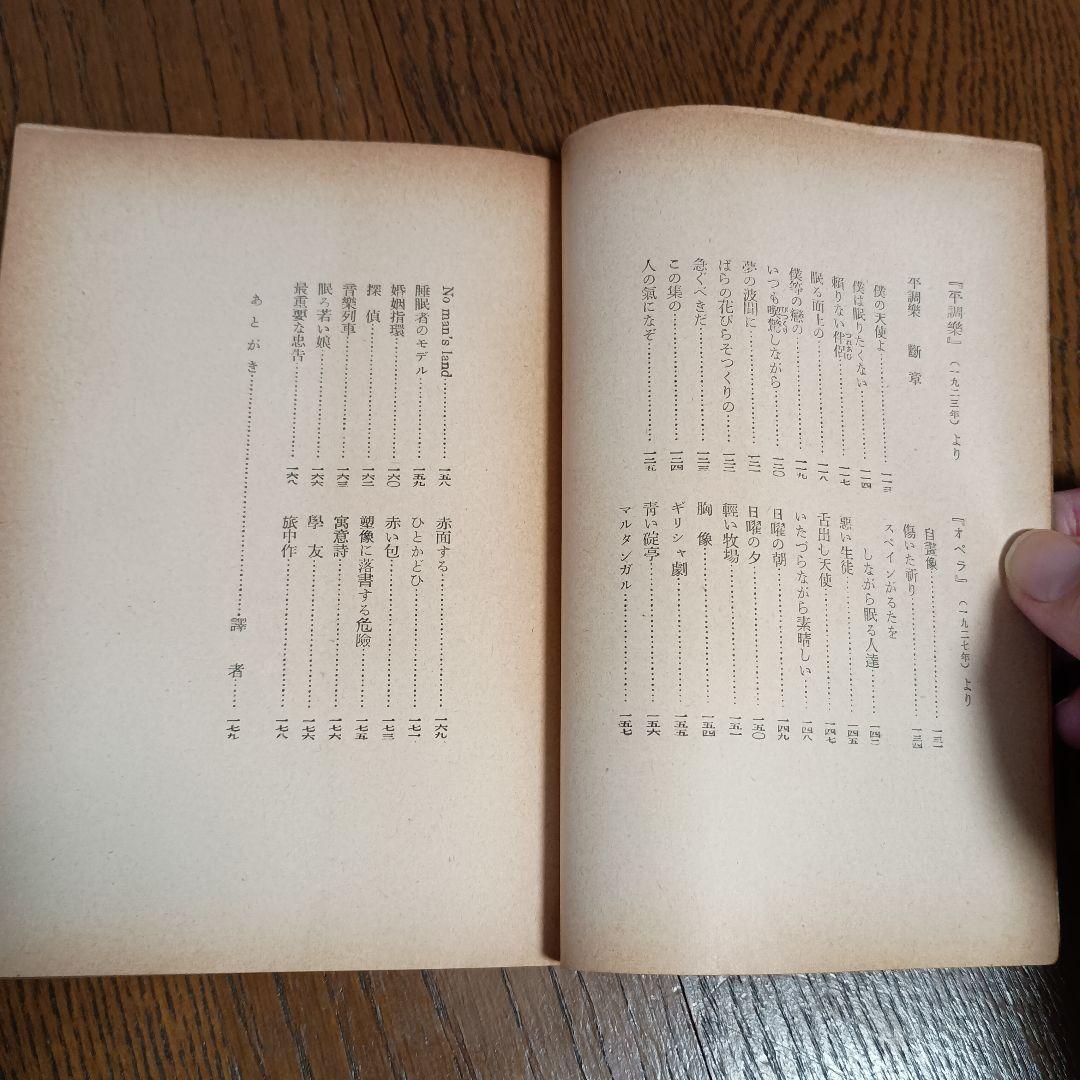 『平調樂』（一九二三年）より
平調樂 斷章
僕の天使よ……………一一三
僕は眠りたくない……………一一四
賴りない伴侶……………一一七
つれあひ
眠る面上の……………一一八
僕等の戀の……………一一九
いつも喫驚しながら……………一二〇
びつくり
夢の波間に……………一二一
ばらの花びらそつくりの……一二二
急ぐべきだ……………一二三
この集の……………一二四
人の氣になぞ……………一二五
『オペラ』（一九二七年）より
自畫像……………一三一
傷いた祈り……………一三四
スペインがるたを
しながら眠る人達……一四二
惡い生徒……………一四五
舌出し天使……………一四七
いたづらながら素晴しい……一四八
日曜の朝……………一四九
日曜の夕……………一五〇
輕い牧場……………一五一
胸像……………一五四
ギリシャ劇……………一五五
青い碇亭……………一五六
マルタンガル……………一五七
No man's land……………一五八
睡眠者のモデル……………一五九
婚姻指環……………一六〇
探偵……………一六二
音樂列車……………一六三
眠る若い娘……………一六六
最重要な忠告……………一六八
赤面する……………一六九
ひとかどひ……………一七一
赤い包……………一七三
塑像に落書する危險……一七五
寓意詩……………一七六
學友……………一七六
旅中作……………一七八
あとがき……………譯者……一七九